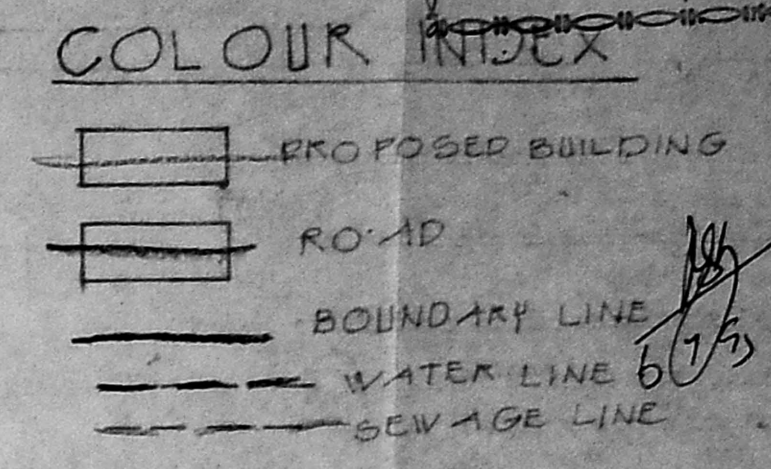 COLOUR INDEX
PROPOSED BUILDING
ROAD
BOUNDARY LINE
WATER LINE
SEWAGE LINE